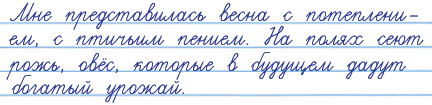 Мне представилась весна с потеплени-
ем, с птичьим пением. На полях сеют
рожь, овёс, которые в будущем дадут
богатый урожай.